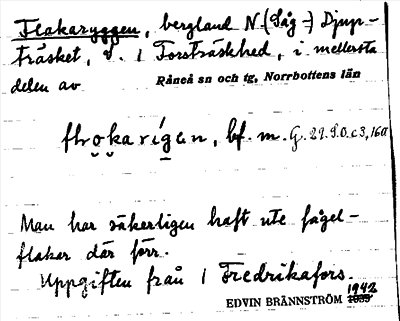 Flakaryggen, bergland N. (Såg-) Djup-
träsket, V. i Forsträskhed, i mellersta
delen av Råneå sn och tg, Norrbottens län
flọkarigen, bf. m. G. 29. S.O. c 3, 16a
Man har säkerligen haft ute fågel-
flakar där förr.
Uppgiften från 1 Fredrikafors.
EDVIN BRÄNNSTRÖM 1942